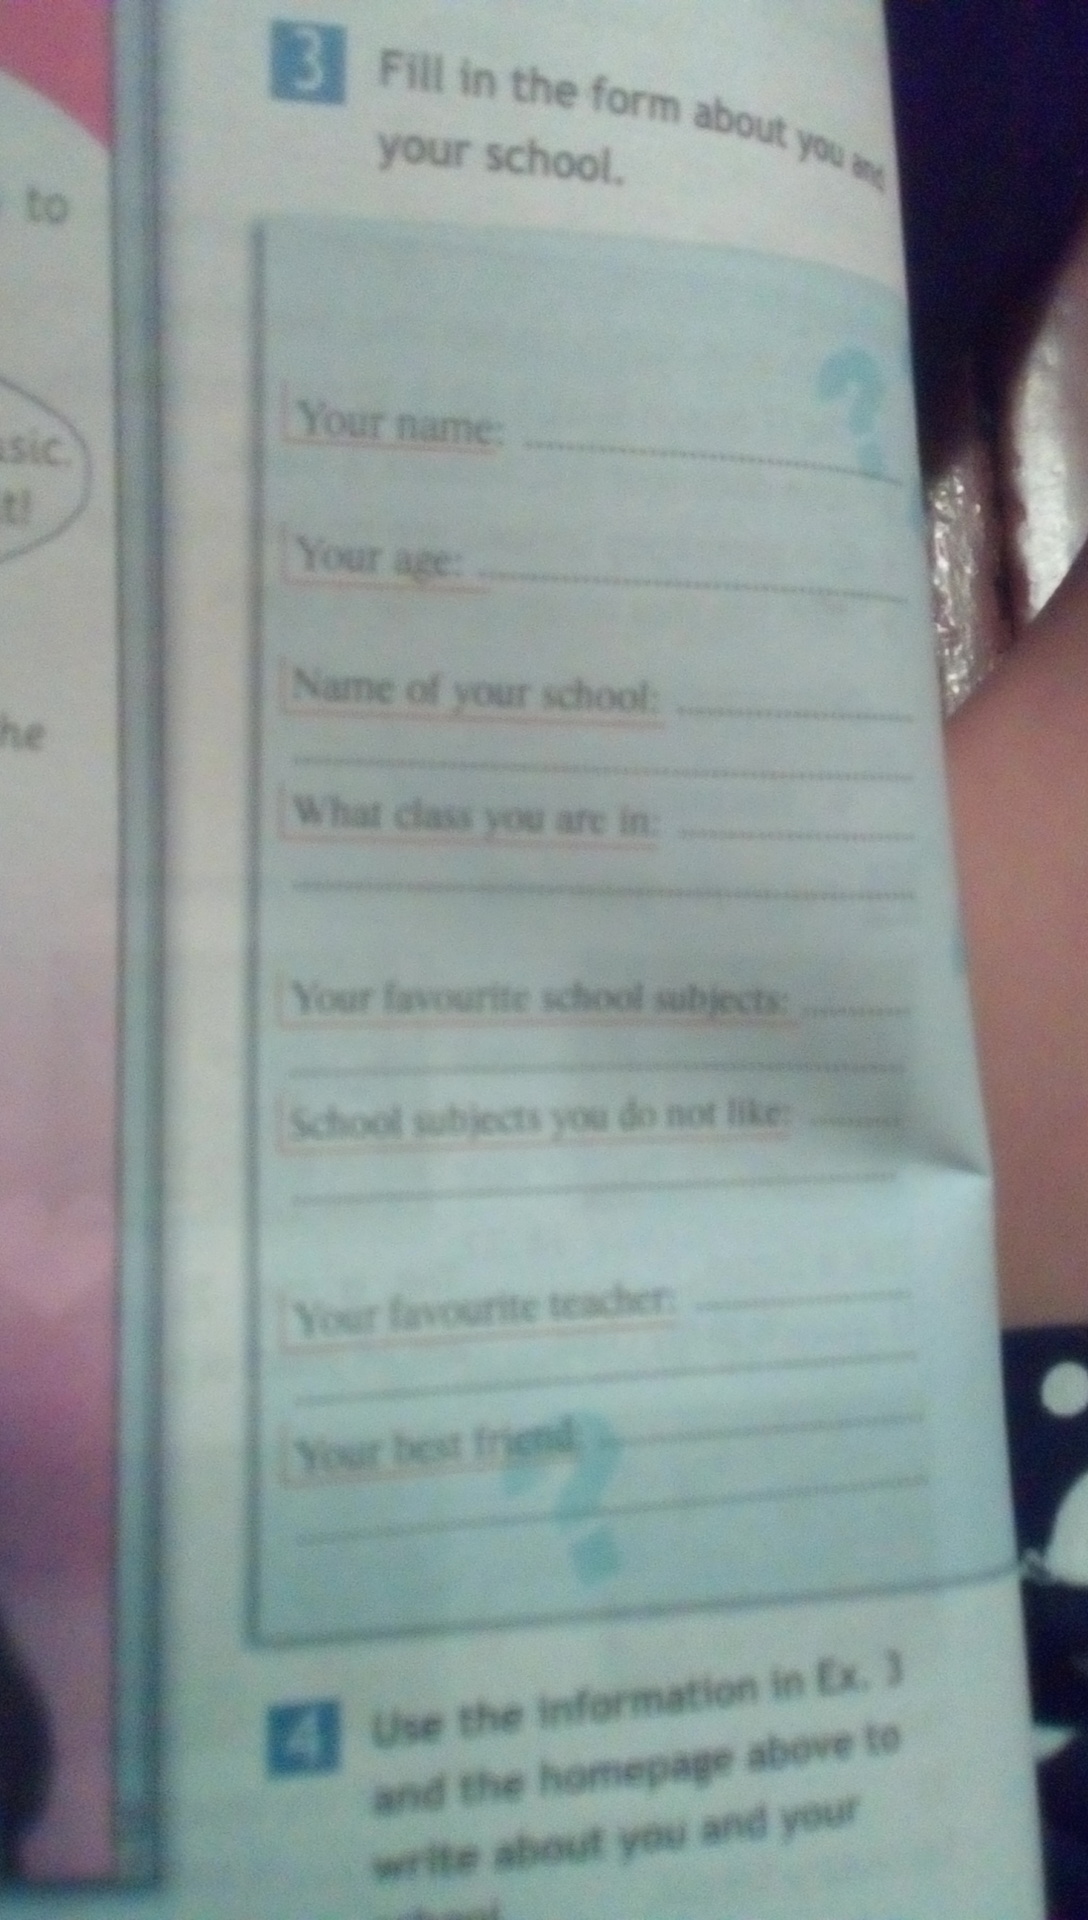 to
sic.
t!
he
3 Fill in the form about you and
your school.
?
Your name:
Your age:
Name of your school:
What class you are in:
Your favourite school subjects:
School subjects you do not like:
Your favourite teacher:
Your best friend:
?
4 Use the information in Ex. 3
and the homepage above to
write about you and your
school.